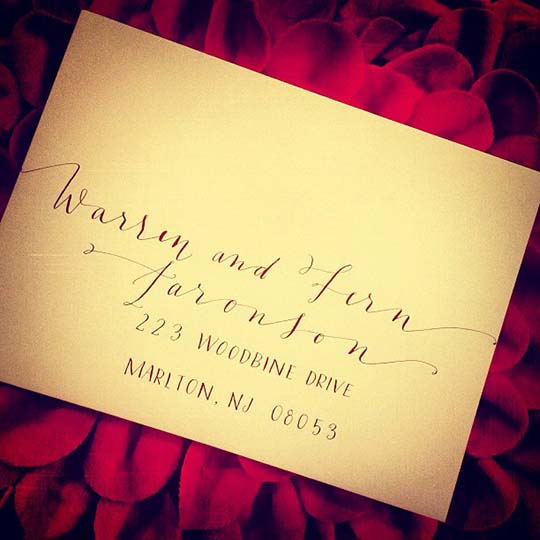 Warren and Fern
Faronson
223 WOODBINE DRIVE
MARLTON, NJ 08053